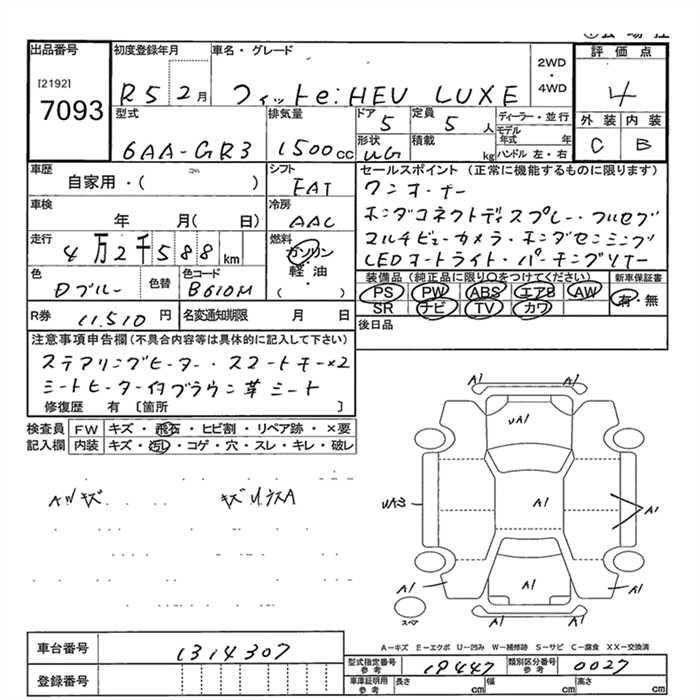 出品番号 初度登録年月 車名・グレード 2WD・4WD 評価点
[2192]
7093 R5 2月 フィットe:HEV LUXE 4
型式 排気量 ドア 定員 ディーラー・並行 外装 内装
6AA-GR3 1500cc 5 5人 モデル年式 年 C B
形状 積載 ハンドル 左・右
WG kg
車歴 シフト セールスポイント(正常に機能するものに限ります)
自家用・( ) FAT ワンオーナー
車検 冷房 ホンダコネクトディスプレー・フルセグ
年 月( 日) AAC マルチビューカメラ・ホンダセンシング
走行 燃料 LEDオートライト・パーキングソナー
4万2千588km ガソリン・軽油・( )
装備品(純正品に限り○をつけてください) 新車保証書
色 色替 色コード PS PW ABS エアB AW 有・無
Dブルー B610M SR ナビ TV カワ
R券 11,510円 名変通知期限 月 日 後日品
注意事項申告欄(不具合内容等は具体的に記入して下さい)
ステアリングヒーター・スマートキー×2
シートヒーター付ブラウン革シート
修復歴 有〔箇所 〕
検査員 FW キズ・飛石・ヒビ割・リペア跡・×要
記入欄 内装 キズ・汚レ・コゲ・穴・スレ・キレ・破レ
A1 A1
UA1
Aツキズ A1 UA3 A1
A1 A1 A1
スペア A1 A1
A-キズ E-エクボ U-凹み W-補修跡 S-サビ C-腐食 XX-交換済
車台番号 1314307
登録番号
型式指定番号 参考 19447 類別区分番号 参考 0027
車庫証明用 参考 長さ cm 幅 cm 高さ cm